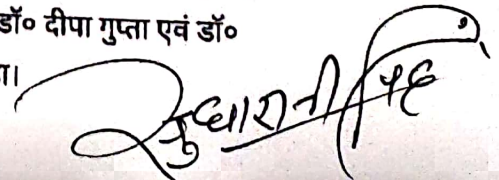 डॉ० दीपा गुप्ता एवं डॉ०
ा।
सुधारानी सिंह